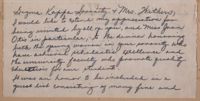 Sigma Kappa Sorority & Mrs. Withers,
I would like to extend my appreciation for
being invited by all of you, and Miss Jean
Otis in particular, to the dinner honoring
both the young women in your sorority who
have achieved scholastic excellence and
the university faculty who promote quality
education for our students.
It was an honor to be included on a
guest list consisting of many fine and